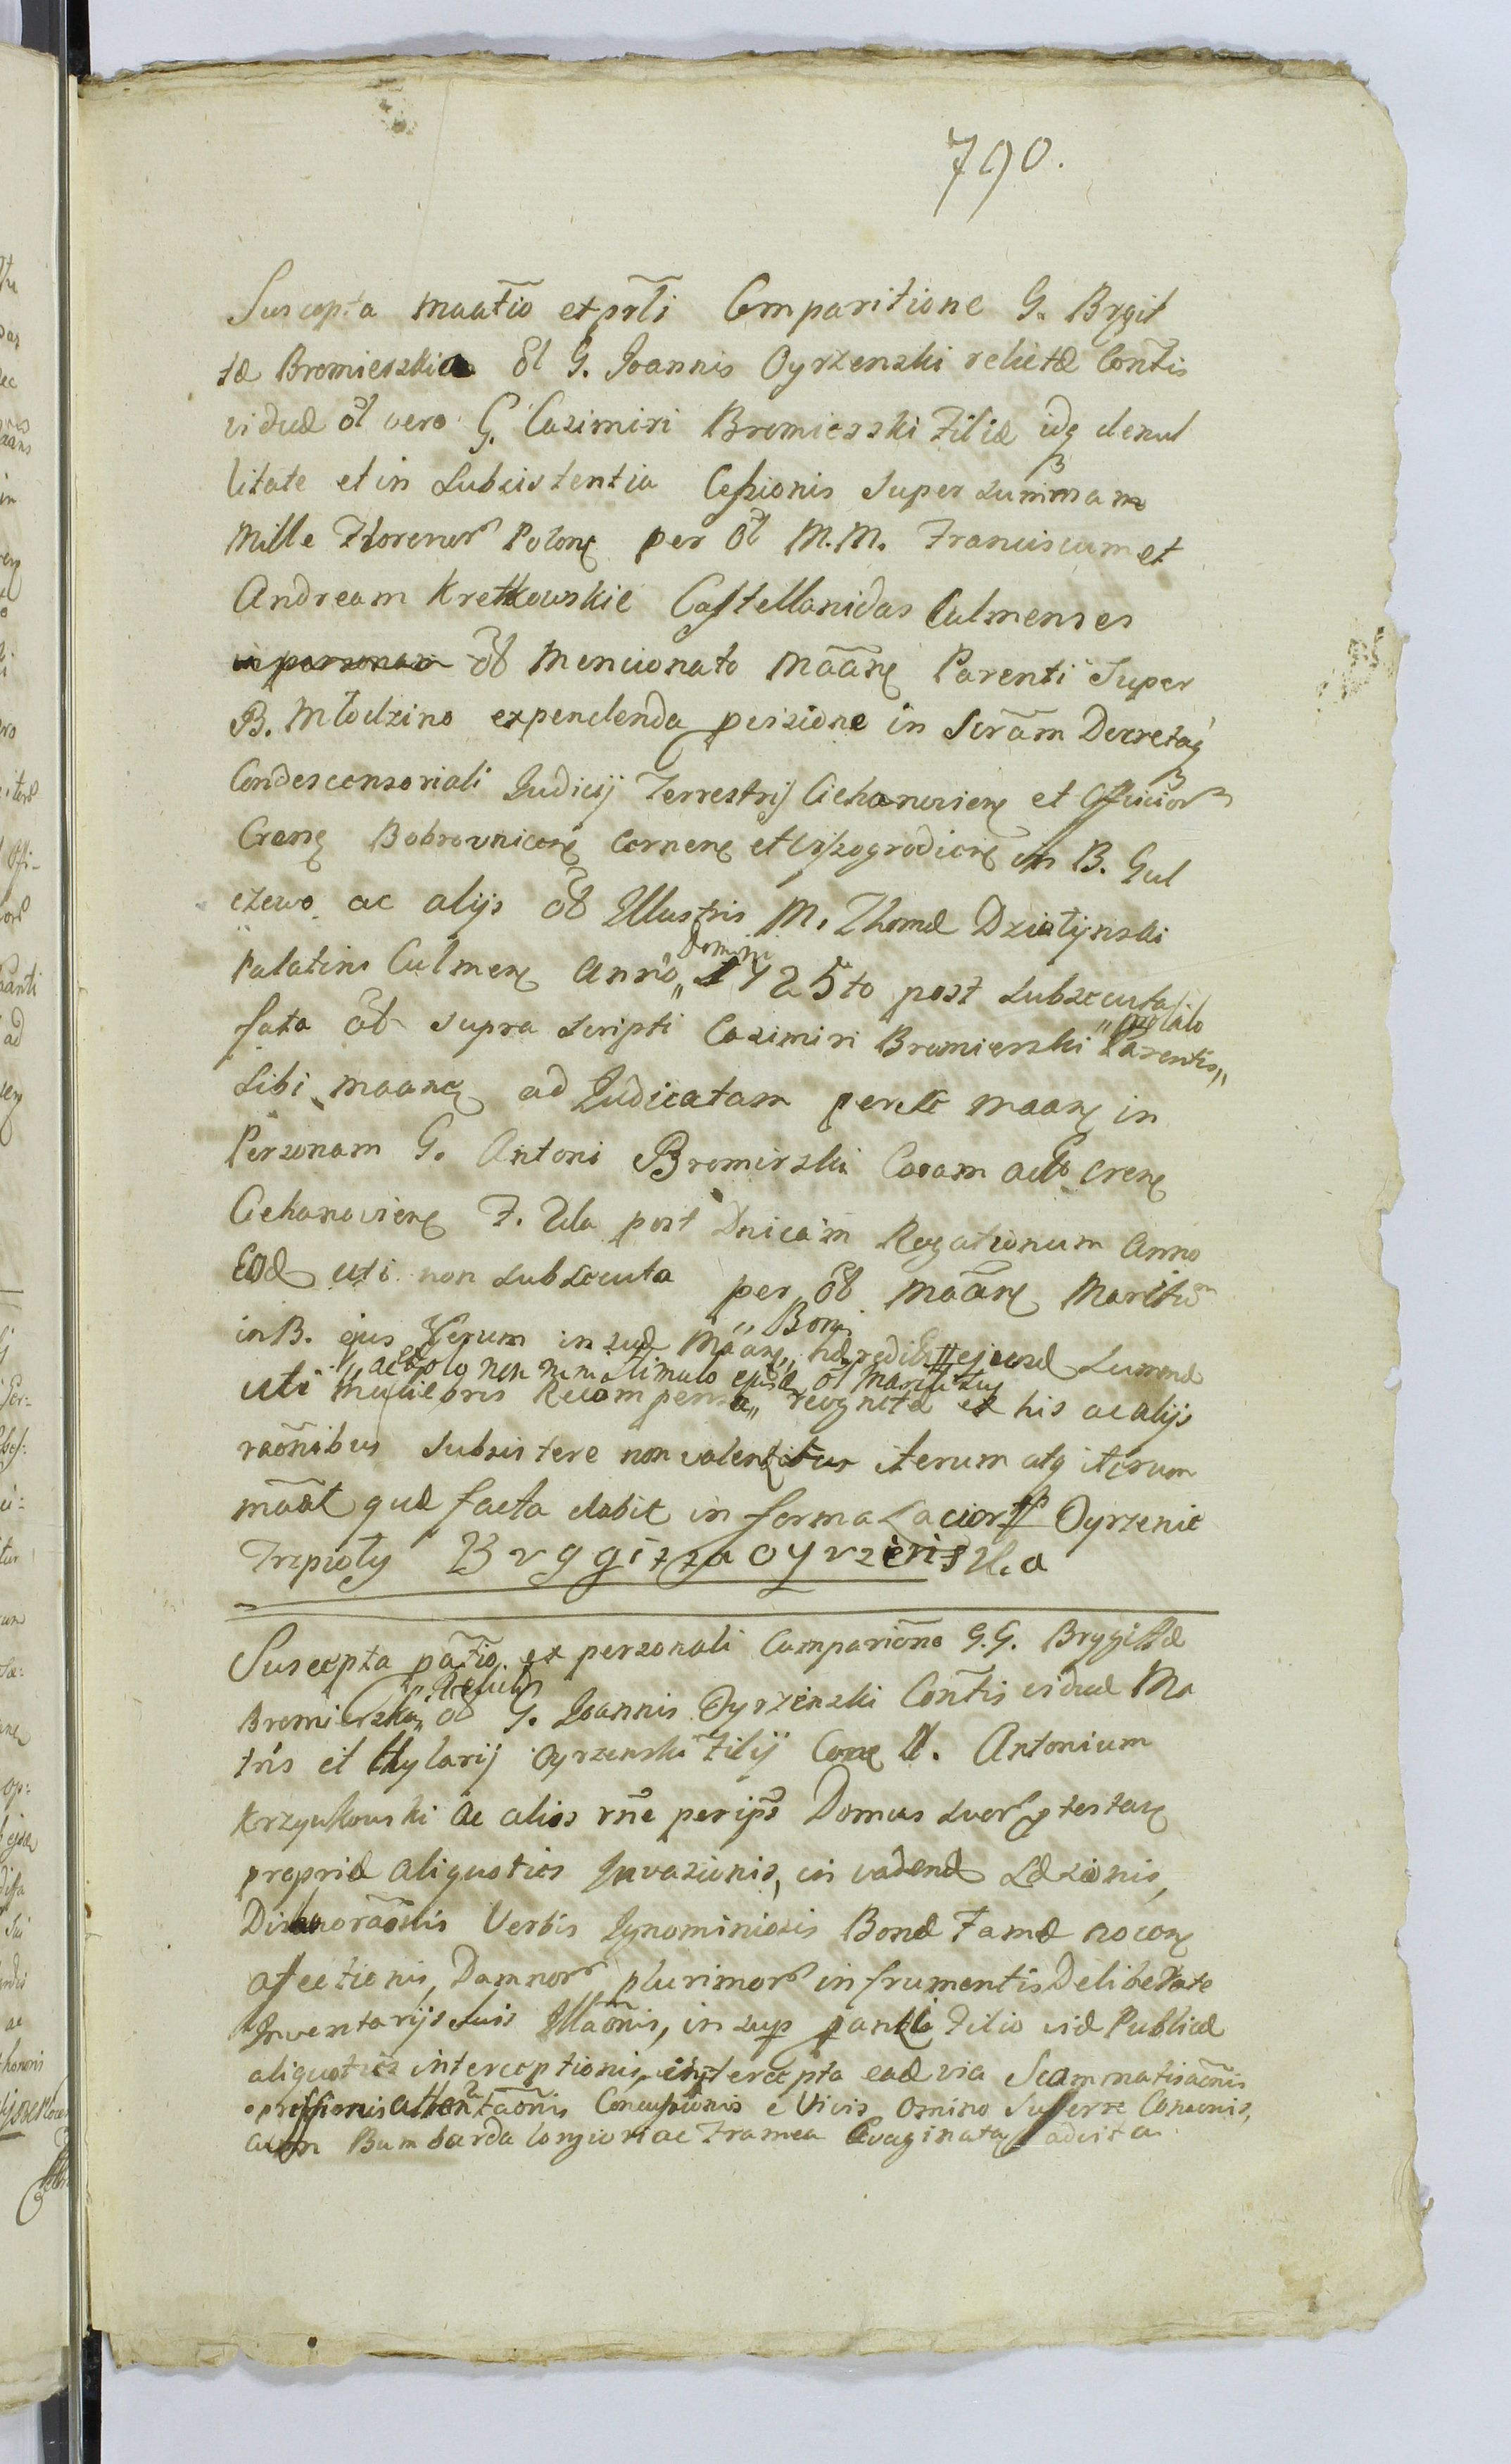 790.
Suscepta maatio et prli Comparitione G. Brygit
tæ Bromierskia Ol G. Joannis Oyrzenski relictæ Contis
viduæ ol vero G. Casimiri Bromierski Filiæ idq de nul
litate et in subsistentia Cessionis super summam
Mille Florenor Polonę per Ol M.M. Franciscum et
Andream Kretkowskie Castellanidas Culmenses
in personam ol mencionato maanę Parenti super
B. Młodzino expendenda
Condescensoriali Judicij Terrestris Ciehanovienę et Officior
Crenę Bobrovnicenę et Wiszogrodienę in B. Gul
czewo ac alijs ol Illustris M. Thomæ Dziatynski
Palatini Culmenę Anno „Domini 1725to post subsecuta
fata ol supra scripti Casimiri Bromierski „prolato Parentis„
sibi maanę ad Judicatam maanę in
Personam G. Antoni Bromirski Coram actis Crenę
Ciehanovienę F. 2da post Dnicam Rogationum Anno
Eod uti non subsecuta per ol maanę Maritum
in B. ejus Verum in suæ maanę „Bon„ hæredib ejusd summæ
uti muliebris Recompensa „ac solo non nem stimulo ejusd ol Mariti sui„ recognita ex his ac alijs
raonibus subsistere non valen iterum atq iterum
maat quæ facta dabit in forma Lacior Oyrzenie
Trzpioły Bryggitta oyrzenska
Suscepta patio et personali Comparione G.G. Brygittæ
Bromierska „relictæ„ ol G. Joannis Oyrzenski Contis viduæ Ma
tris et Hylarij Oyrzenski Filij Conę N. Antonium
Krzyukowski ac alios rne per ips Domus suor ptestanę
propriæ aliquoties Invasionis, in vadend Læsionis,
Dishonoraonis Verbis Ignominiosis Bonæ Famæ nocenę
afectionis, Damnor plurimor in frumentis Deliberate
Inventarijs suis Illaonis, in sup Filio viæ Publicæ
aliquoties interceptionis, intercepta ead via Scammatisaonis
opressionis attentaonis Concussionis e Vivis omino suferre Conaonis,
acum Bambarda longiori ac Framea Evaginata advita